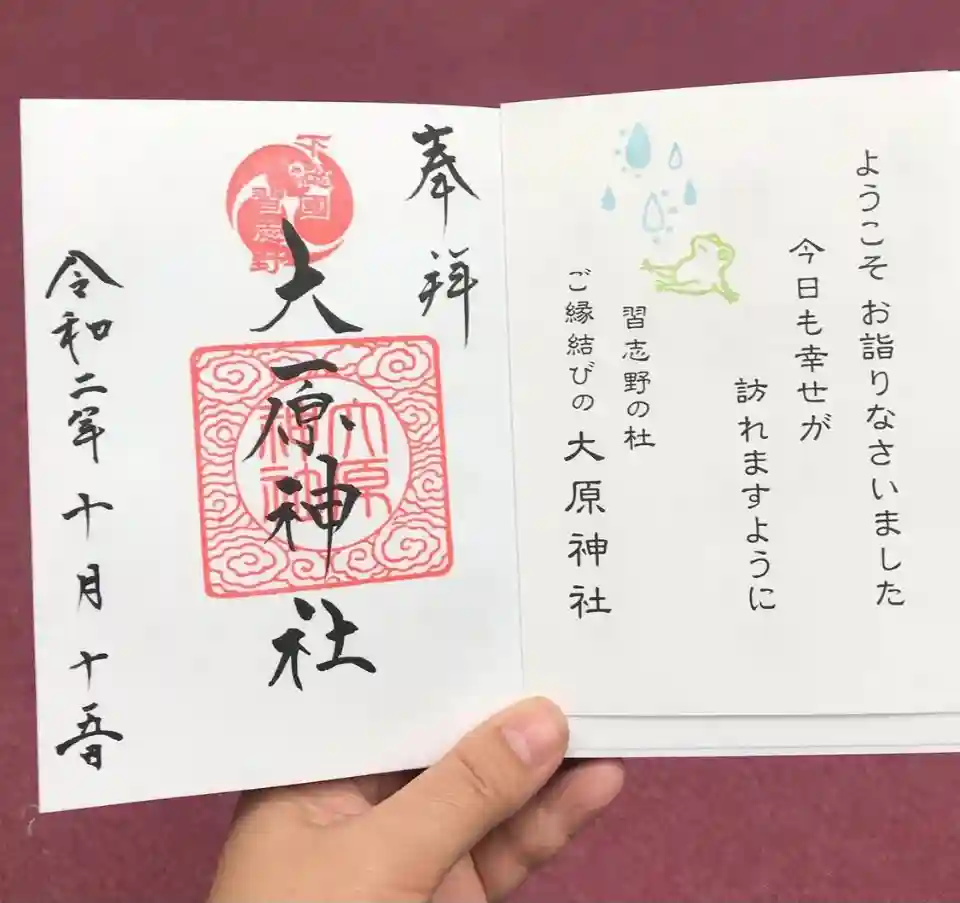 ようこそ お詣りなさいました
今日も幸せが
訪れますように
習志野の杜
ご縁結びの 大原神社
奉拝
下總国
習志野
大原神社
大原
神社
令和二年 十月 十五日